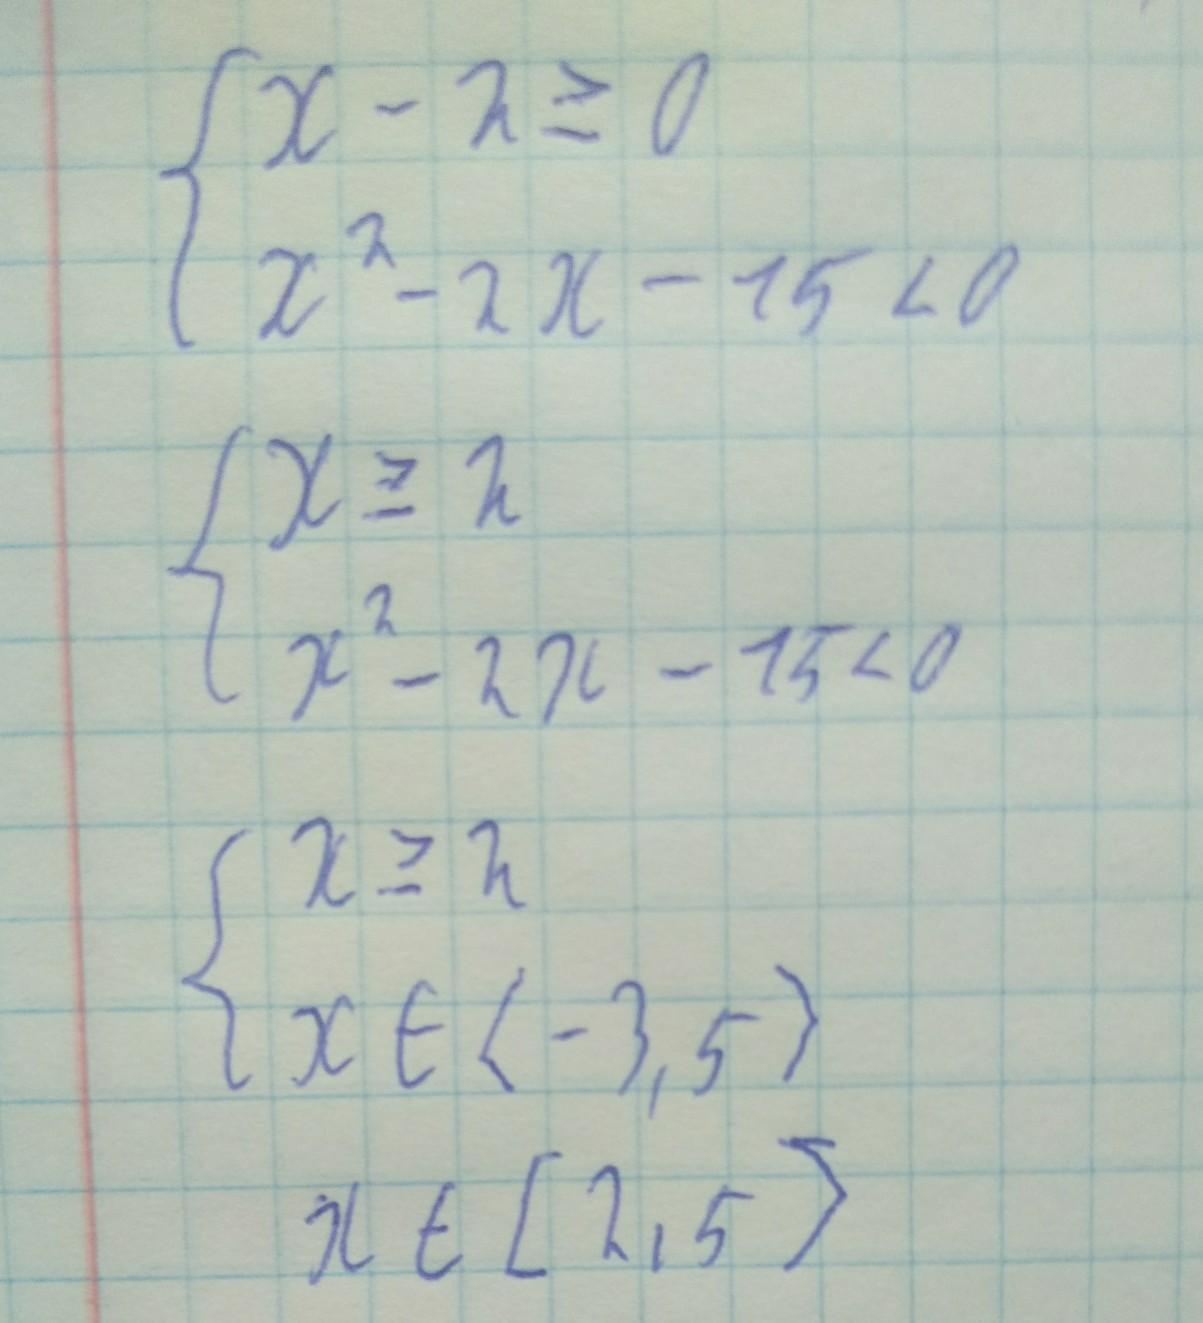 x - 2 ≥ 0
x² - 2x - 15 < 0
x ≥ 2
x² - 2x - 15 < 0
x ≥ 2
x ∈ ⟨-3,5⟩
x ∈ [2,5⟩